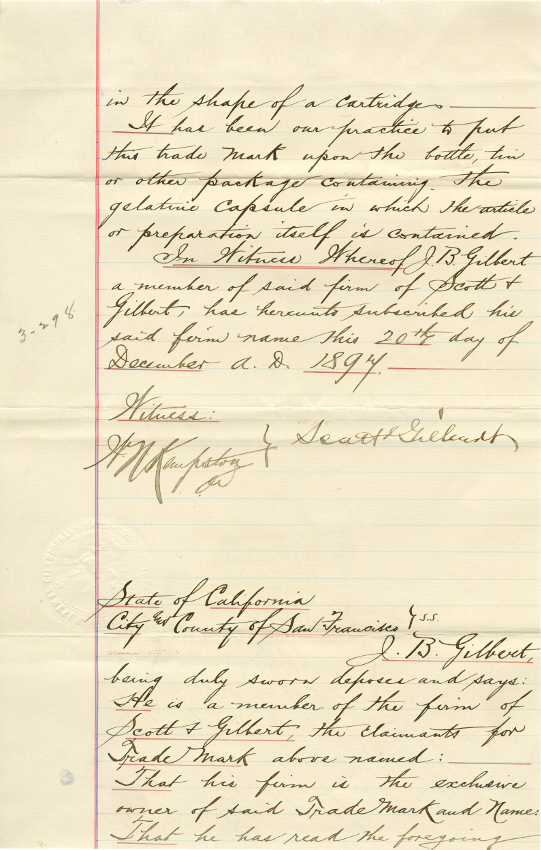 in the shape of a cartridge
It has been our practice to put
this trade mark upon the bottle, tin
or other package containing the
gelatine capsule in which the article
or preparation itself is contained.
In Witness Whereof J. B. Gilbert
a member of said firm of Scott &
Gilbert, has hereunto subscribed his
said firm name this 20th day of
December A. D. 1897.
3-298
Witness:
Scott & Gilbert
Kempston
Jr
State of California
City and County of San Francisco } s.s.
J. B. Gilbert,
being duly sworn deposes and says:
He is a member of the firm of
Scott & Gilbert, the claimants for
Trade Mark above named:
That his firm is the exclusive
owner of said Trade Mark and Name:
That he has read the foregoing